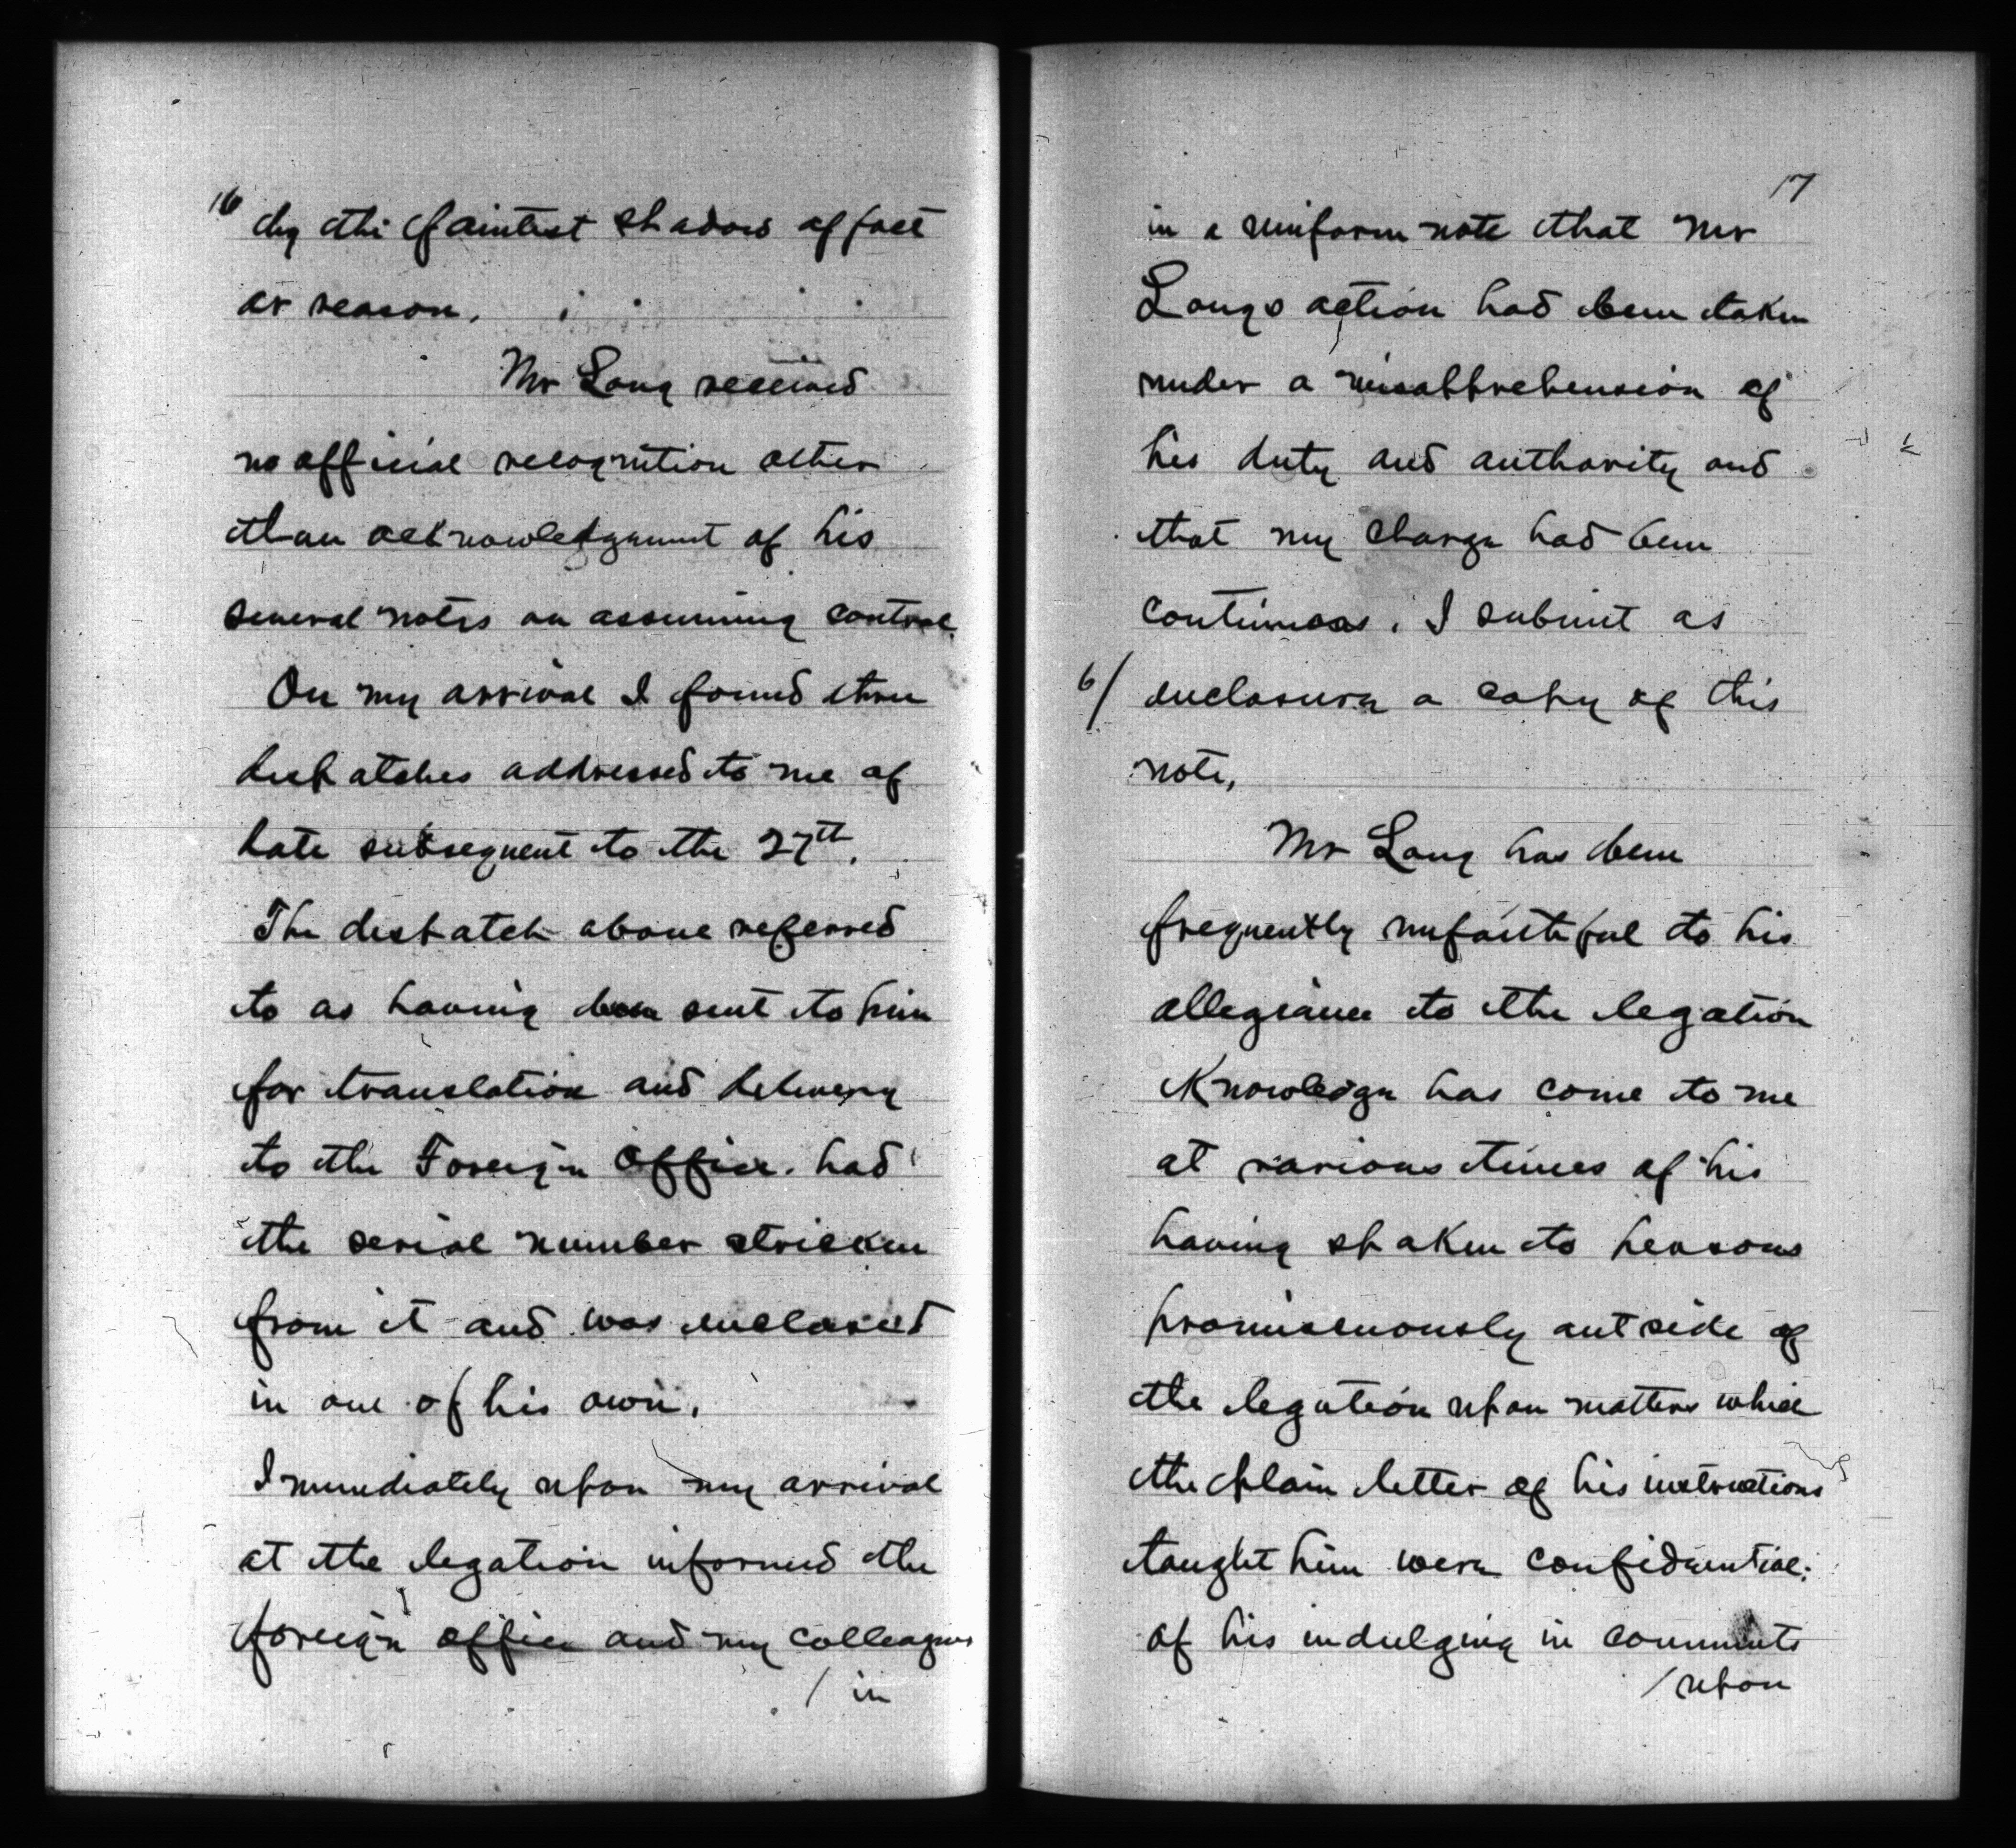 16
by the faintest shadow of fact
or reason.
Mr Long received
no official recognition other
than acknowledgment of his
several notes on assuming control.
On my arrival I found three
despatches addressed to me of
date subsequent to the 27th.
The despatch above referred
to as having been sent to him
for translation and delivery
to the Foreign Office had
the serial number stricken
from it and was enclosed
in one of his own.
Immediately upon my arrival
at the legation informed the
foreign office and my colleagues
/ in
17
in a uniform note that Mr
Longs action had been taken
under a misapprehension of
his duty and authority and
that my charge had been
continuous. I submit as
6/ enclosure a copy of this
note.
Mr Long has been
frequently unfaithful to his
allegiance to the legation
Knowledge has come to me
at various times of his
having spoken to persons
promiscuously outside of
the legation upon matters which
the plain letter of his instructions
taught him were confidential;
of his indulging in comments
/ upon